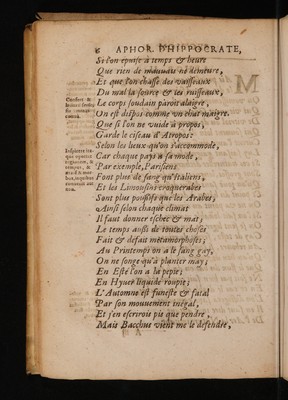 6 APHOR. D'HIPPOCRATE,
Si l'on épuise à temps & heure
Que rien de mauuais ne demeure,
Et que l'on chasse des vaisseaux
Du mal la source & les ruisseaux,
Le corps soudain paroit alaigre,
On est dispos comme vn chat maigre.
Que si l'on ne vuide à propos,
Garde le ciseau d'Atropos:
Selon les lieux qu'on s'accommode,
Car chaque pays a sa mode,
Par exemple, Parisiens
Font plus de sang qu'Italiens,
Et les Limousins croquerabes
Sont plus poussifs que les Arabes;
Ainsi selon chaque climat
Il faut donner eschec & mat;
Le temps aussi de toutes choses
Fait & défait metamorphoses;
Au Printemps on a le sang gay,
On ne songe qu'à planter may;
En Esté l'on a la pepie;
En Hyuer liquide roupie;
L'Automne est funeste & fatal
Par son mouuement inégal,
Et i'en escrirois pis que pendre,
Mais Bacchus vient me le défendre,